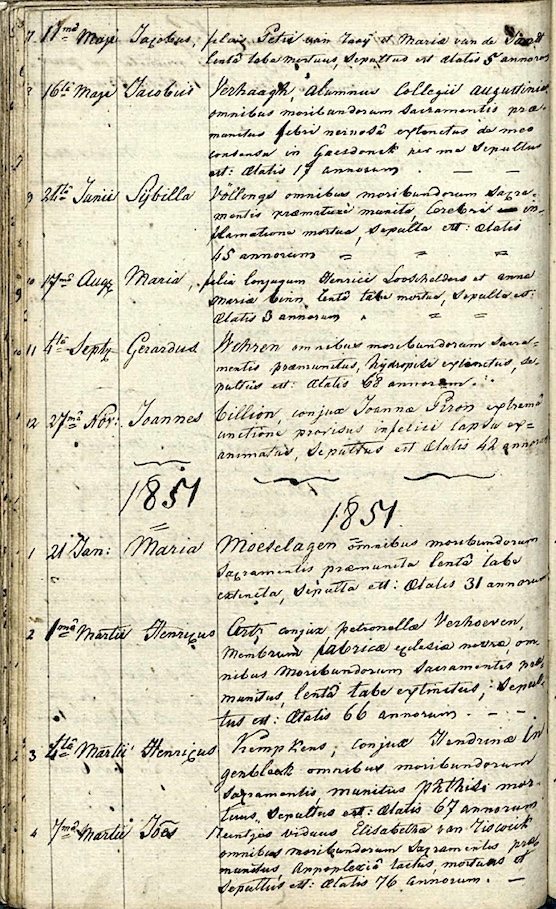 7 11ma Maji Jacobus, filius Petri van et Maria van de
lenta tabe mortuus, sepultus est ætatis 5 annorum
8 16ta Maji Jacobus Verhaagh, Alumnus Collegii Augustiniani
omnibus moribundorum Sacramentis præ=
munitus febri nervosâ extinctus de meo
consensu in Gaesdonck per me Sepultus
est: Ætatis 17 annorum. — —
9 24ta Junii Sybilla Völlengs omnibus moribundorum Sacra=
mentis præmunita, Cerebri in=
flamatione mortua, Sepulta est: ætatis
45 annorum = = =
10 17ma Aug Maria, filia Conjugum Henrici Looschelders et Anna
Maria lentâ tabe mortua, Sepulta est:
Ætatis 3 annorum = =
11 4ta Septr Gerardus Wehren omnibus moribundorum Sacra=
mentis præmunitus, hydropisi extinctus, se=
pultus est: Ætatis 68 annorum.
12 27ma Nov: Joannes Cillion, conjux Joannæ Piron extremâ
unctione provisus infelici lapsu ex=
animatus, Sepultus est Ætatis 42 annorum
1851 1851.
1 21 Jan: Maria Moeselagen omnibus moribundorum
Sacramentis præmunita lentâ tabe
extincta, Sepulta est: Ætatis 31 annorum
2 1ma Martii Henricus conjux petronellæ Verhoeven,
Membrum fabricæ eclesiæ nostræ om=
nibus Moribundorum Sacramentis præ=
munitus, lentâ tabe extinctus, Sepul=
tus est: Ætatis 66 annorum. — —
3 4ta Martii Henricus Kempkens, conjux Hendrinæ In=
genbleek omnibus moribundorum
Sacramentis munitus phthisi mor=
tuus, Sepultus est: Ætatis 67 annorum
4 7ma Martii Joës viduus Elisabetha van
omnibus moribundorum Sacramentis præ=
munitus, Appoplexiâ tactus, mortuus et
Sepultus est: Ætatis 76 annorum. —